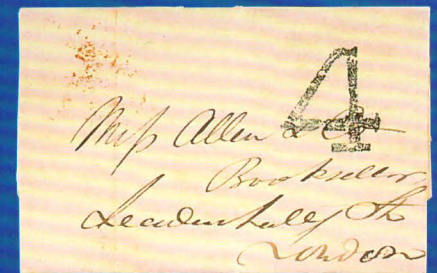 4
Messrs Allen & Co
Booksellers
Leadenhall St
London